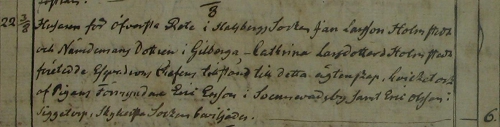 8
22 3/8 Husaren för Öfversta Rote i Halsbergs Socken Jan Larsson Holmstedt
och Nämdemans Dottren i Gilberga Cathrina Larsdotter Holmstedt
företedde Esquadrons Chefens tilstånd til detta ägtenskap, hvilket och
af Pigans Förmyndare Eric Ersson i samt Eric Olsson i
Siggetorp, Skyllersta Socken beviljades. 6